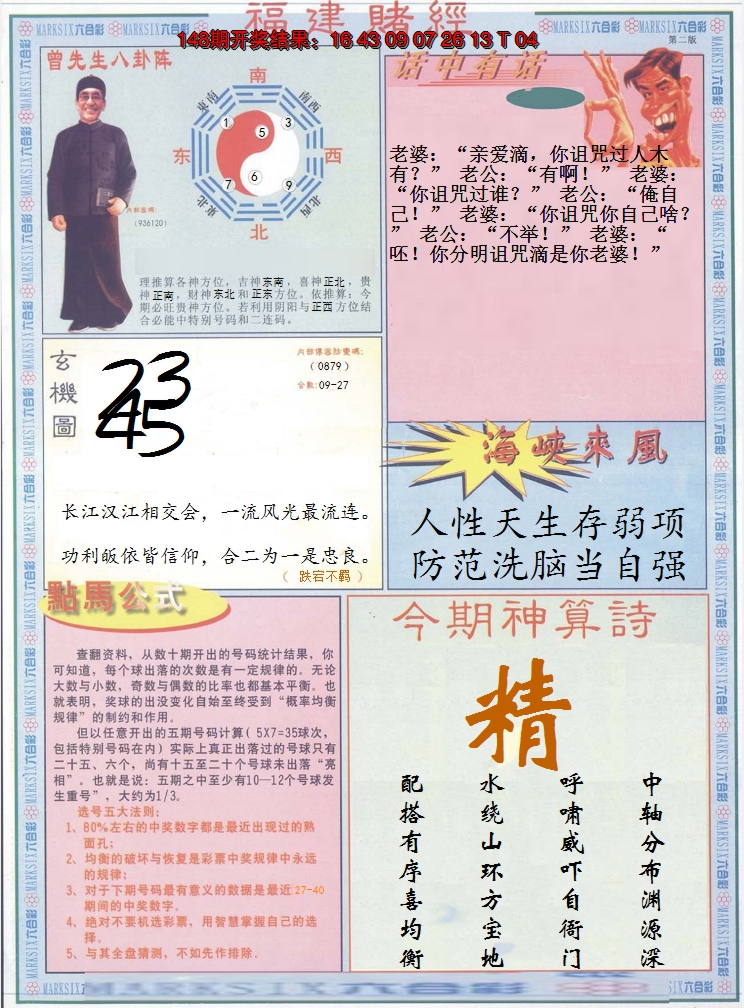 福建賭經
148期开奖结果：16 43 09 07 26 13 T 04
MARKSIX六合彩
第二版
曾先生八卦阵
南
東南
南西
1
5
3
东
西
7
6
9
東北
北西
北
內部密碼：
（936120）
理推算各神方位，吉神东南，喜神正北，贵
神正南，财神东北和正东方位。依推算：今
期必旺贵神方位。若利用阴阳与正西方位结
合必能中特别号码和二连码。
话中有话
老婆：“亲爱滴，你诅咒过人木
有？” 老公：“有啊！” 老婆：
“你诅咒过谁？” 老公：“俺自
己！” 老婆：“你诅咒你自己啥？
” 老公：“不举！” 老婆：“
呸！你分明诅咒滴是你老婆！”
玄機圖
23
45
內部傳密防變碼：
（0879）
合数：09-27
长江汉江相交会，一流风光最流连。
功利皈依皆信仰，合二为一是忠良。
（ 跌宕不羁 ）
海峽來風
人性天生存弱项
防范洗脑当自强
點馬公式
查翻资料，从数十期开出的号码统计结果，你
可知道，每个球出落的次数是有一定规律的。无论
大数与小数，奇数与偶数的比率也都基本平衡。也
就表明，奖球的出没变化自始至终受到“概率均衡
规律”的制约和作用。
但以任意开出的五期号码计算（5X7=35球次，
包括特别号码在内）实际上真正出落过的号球只有
二十五、六个，尚有十五至二十个号球未出落“亮
相”。也就是说：五期之中至少有10—12个号球发
生重号”，大约为1/3。
选号五大法则：
1、80%左右的中奖数字都是最近出现过的熟
面孔；
2、均衡的破坏与恢复是彩票中奖规律中永远
的规律；
3、对于下期号码最有意义的数据是最近27-40
期间的中奖数字。
4、绝对不要机选彩票，用智慧掌握自己的选
择。
5、与其全盘猜测，不如先作排除。
今期神算詩
精
中轴分布渊源深
呼啸威吓自衙门
水绕山环方宝地
配搭有序喜均衡